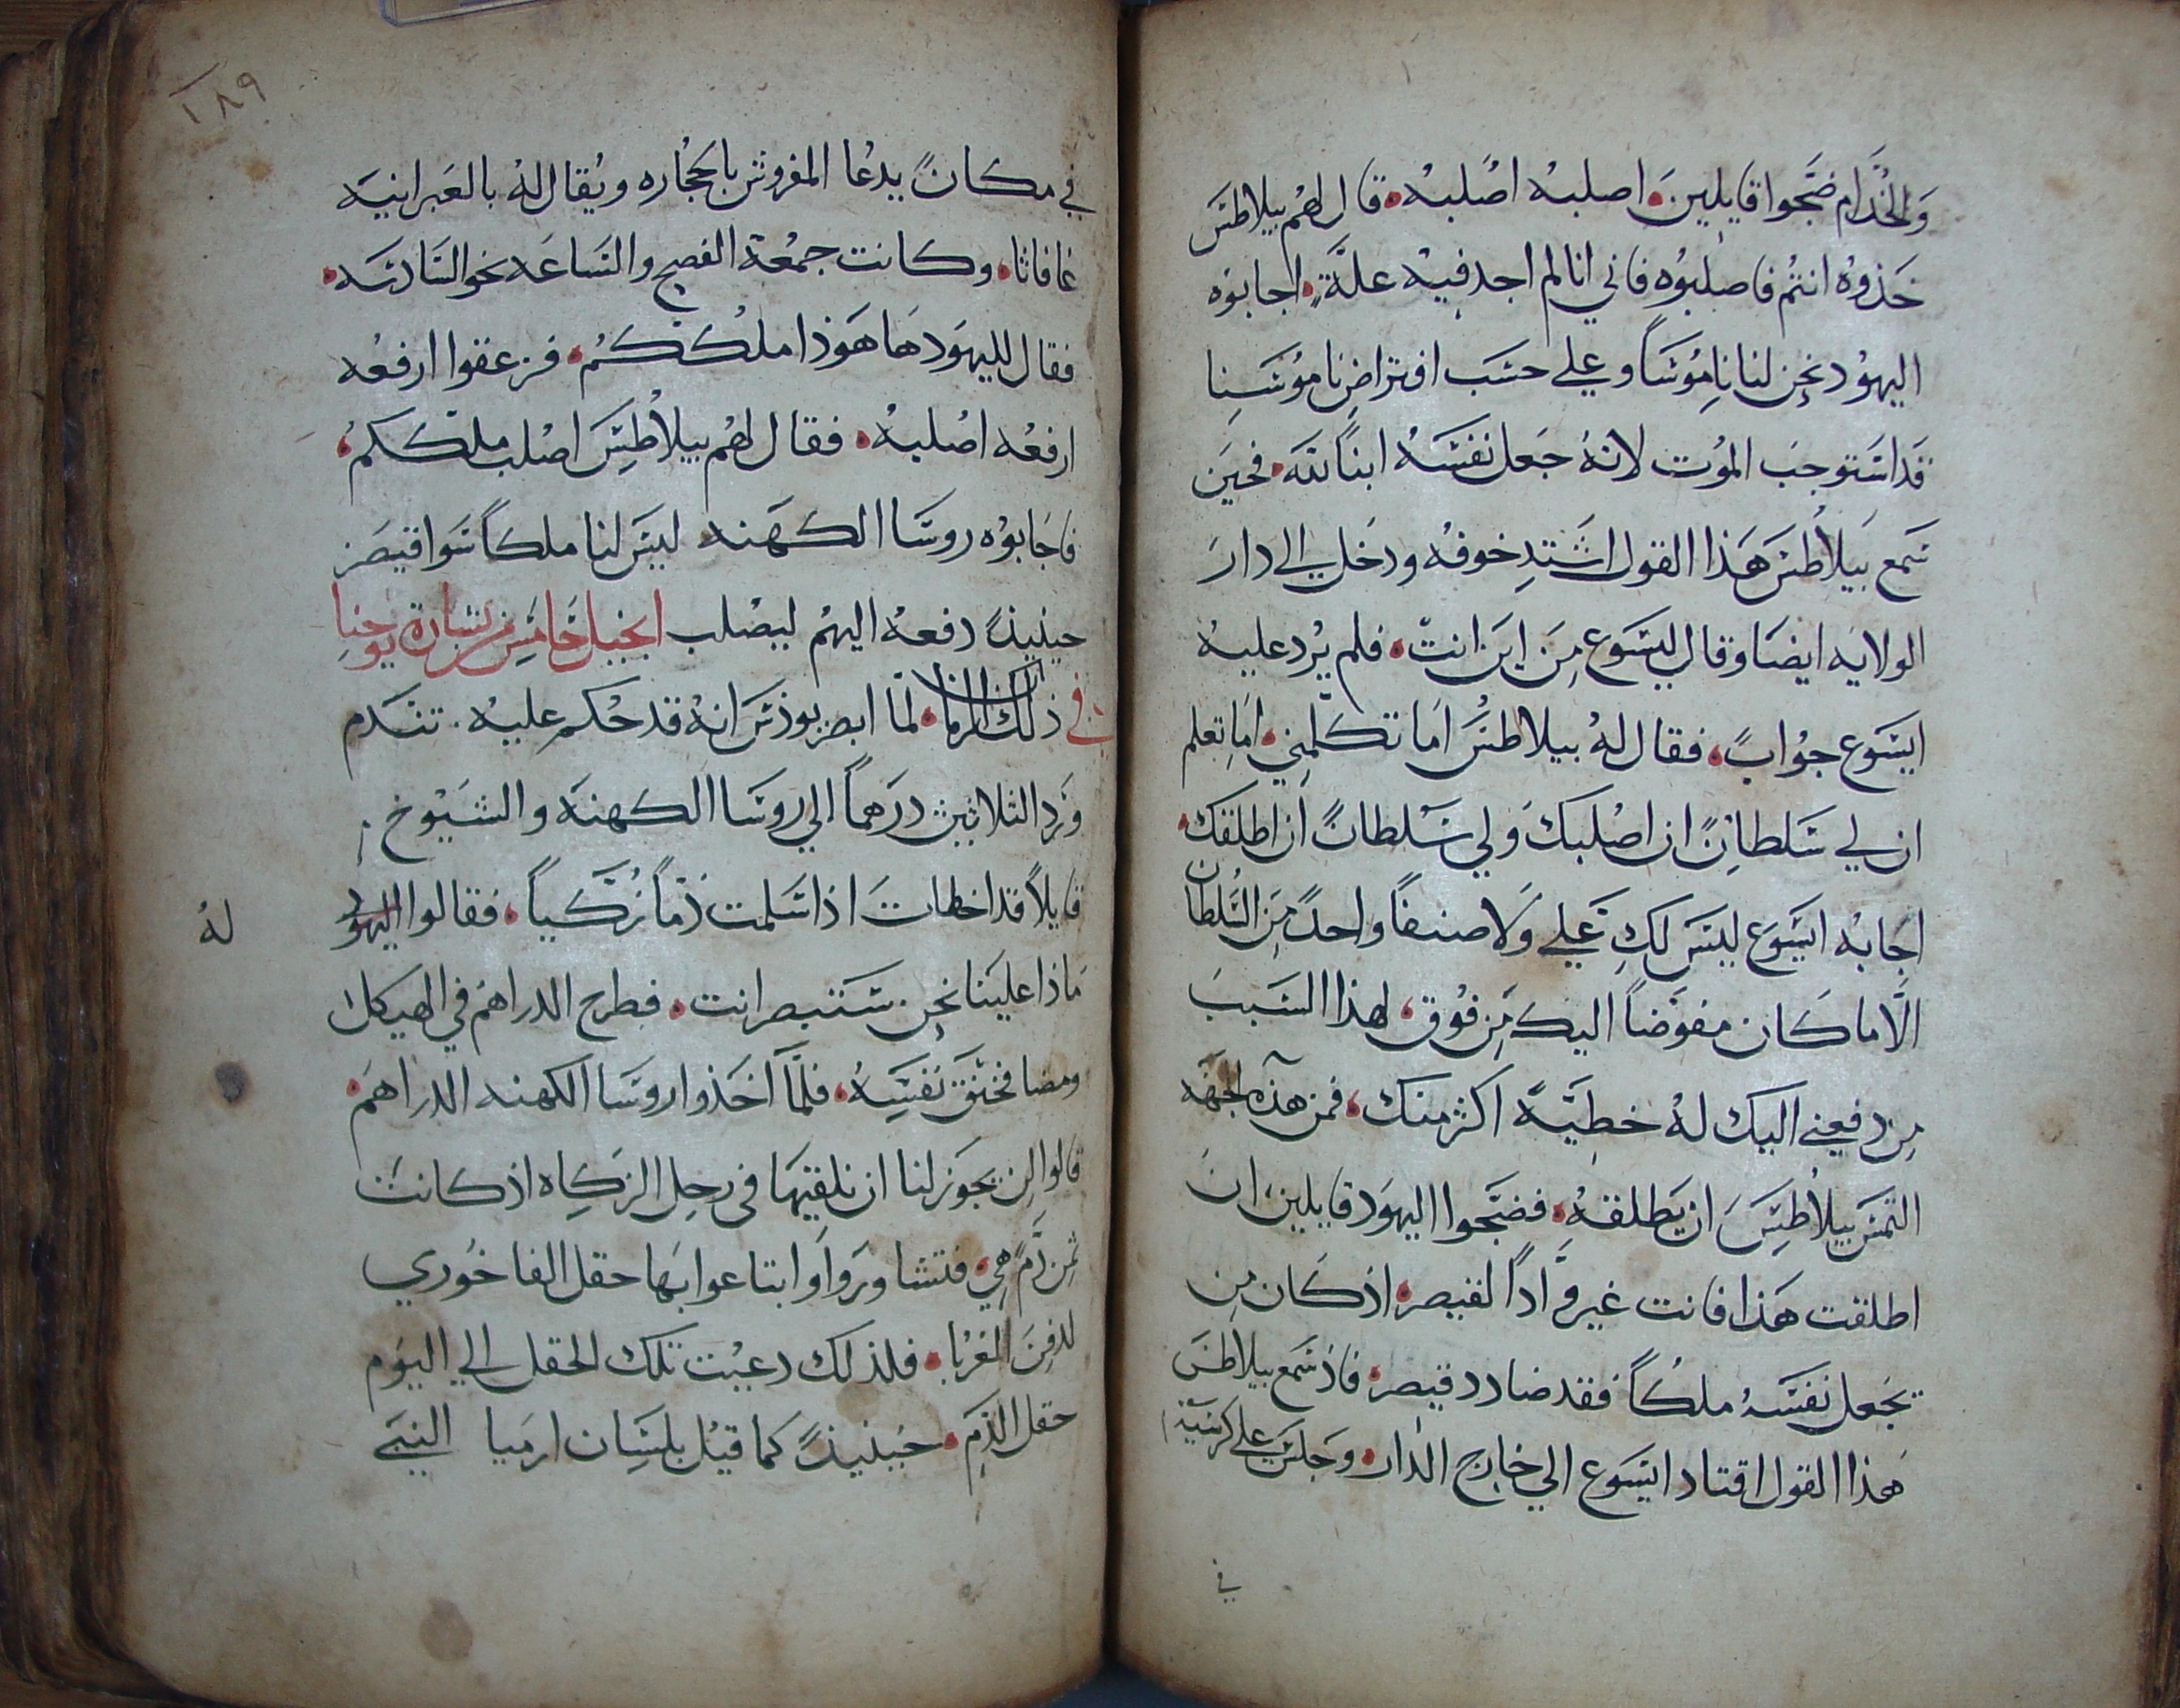 والخدام ضجوا قايلين اصلبه اصلبه قال لهم بيلاطس
خذوه انتم فاصلبوه فاني انا لم اجد فيه علة اجابوه
اليهود نحن لنا ناموسا وعلي حسب افتراض ناموسنا
قد استوجب الموت لانه جعل نفسه ابنا لله فحين
سمع بيلاطس هذا القول اشتد خوفه ودخل الي دار
الولايه ايضا وقال ليسوع من اين انت فلم يرد عليه
ايسوع جوابا فقال له بيلاطس اما تكلمني اما تعلم
ان لي سلطان ان اصلبك ولي سلطان ان اطلقك
اجابه ايسوع ليس لك علي ولا صنفا واحد من السلطان
الا ما كان مفوضا اليك من فوق لهذا السبب
من دفعني اليك له خطية اكثر منك فمن هذه الجهه
التمس بيلاطس ان يطلقه فضجوا اليهود قايلين ان
اطلقت هذا فانت غير وادا لقيصر اذ كان من
يجعل نفسه ملكا فقد ضادد قيصر فاذ سمع بيلاطس
هذا القول اقتاد ايسوع الي خارج الدار وجلس علي كرسية
في
١٨٩
في مكان يدعا المفروش بالحجاره ويقال له بالعبرانيه
غافاثا وكانت جمعة الفصح والساعه نحو السادسه
فقال لليهود ها هوذا ملككم فزعقوا ارفعه
ارفعه اصلبه فقال لهم بيلاطس اصلب ملككم
فاجابوه روسا الكهنه ليس لنا ملكا سوا قيصر
حينيذ دفعه اليهم ليصلب انجيل خامس من بشارة يوحنا
في ذلك الزمان لما ابصر يوذس انه قد حكم عليه تندم
ورد الثلاثين درهما الي روسا الكهنه والشيوخ
قايلا قد اخطات اذ اسلمت دما زكيا فقالوا اليهود
له
ماذا علينا نحن ستبصر انت فطرح الدراهم في الهيكل
ومضا فخنق نفسه فلما اخذوا روسا الكهنه الدراهم
قالوا لن يجوز لنا ان نلقيها في رحل الزكاه اذ كانت
ثمن دم هي فتشاوروا وابتاعوا بها حقل الفاخوري
لدفن الغربا فلذلك دعيت تلك الحقل الي اليوم
حقل الدم حينيذ كما قيل بلسان ارميا النبي